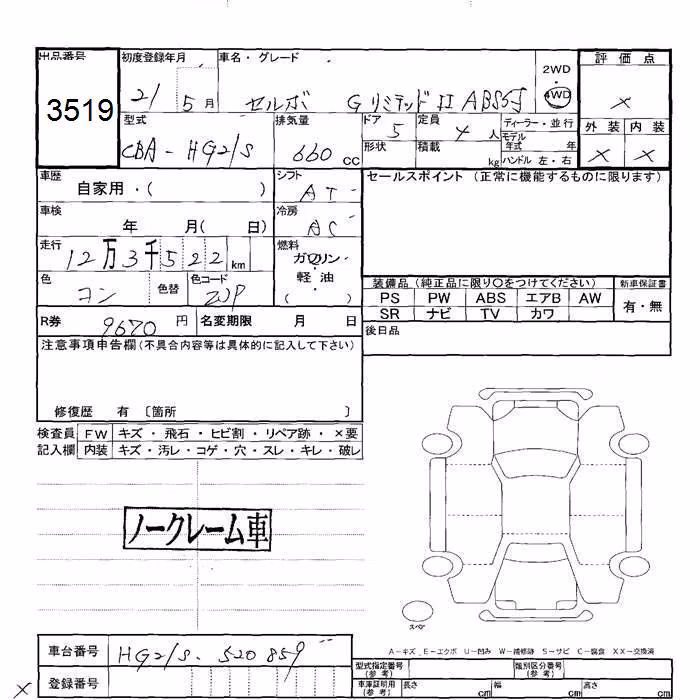 出品番号
3519
初度登録年月
21 5 月
車名・グレード
セルボ GリミテッドⅡ ABS5J
2WD
・
4WD
評価点
×
型式
CBA - HG21S
排気量
660 CC
ドア
5
定員
4 人
形状
積載
kg
ディーラー・並行
モデル年式 年
ハンドル 左・右
外装 内装
× ×
車歴
自家用・( )
シフト
AT
セールスポイント (正常に機能するものに限ります)
車検
年 月( 日)
冷房
AC
走行
12万3千522 km
燃料
ガソリン
・
軽油
( )
色
コン
色替
色コード
ZJP
装備品 (純正品に限り○をつけてください)
新車保証書
PS PW ABS エアB AW
有・無
SR ナビ TV カワ
R券 9670 円
名変期限 月 日
後日品
注意事項申告欄(不具合内容等は具体的に記入して下さい)
修復歴 有 〔箇所 〕
検査員 FW キズ・飛石・ヒビ割・リペア跡・×要
記入欄 内装 キズ・汚レ・コゲ・穴・スレ・キレ・破レ
ノークレーム車
スペア
A-キズ E-エクボ U-凹み W-補修跡 S-サビ C-腐食 XX-交換済
車台番号 HG21S-520859
登録番号
×
型式指定番号(参考)
類別区分番号(参考)
車庫証明用(参考) 長さ cm 幅 cm 高さ cm